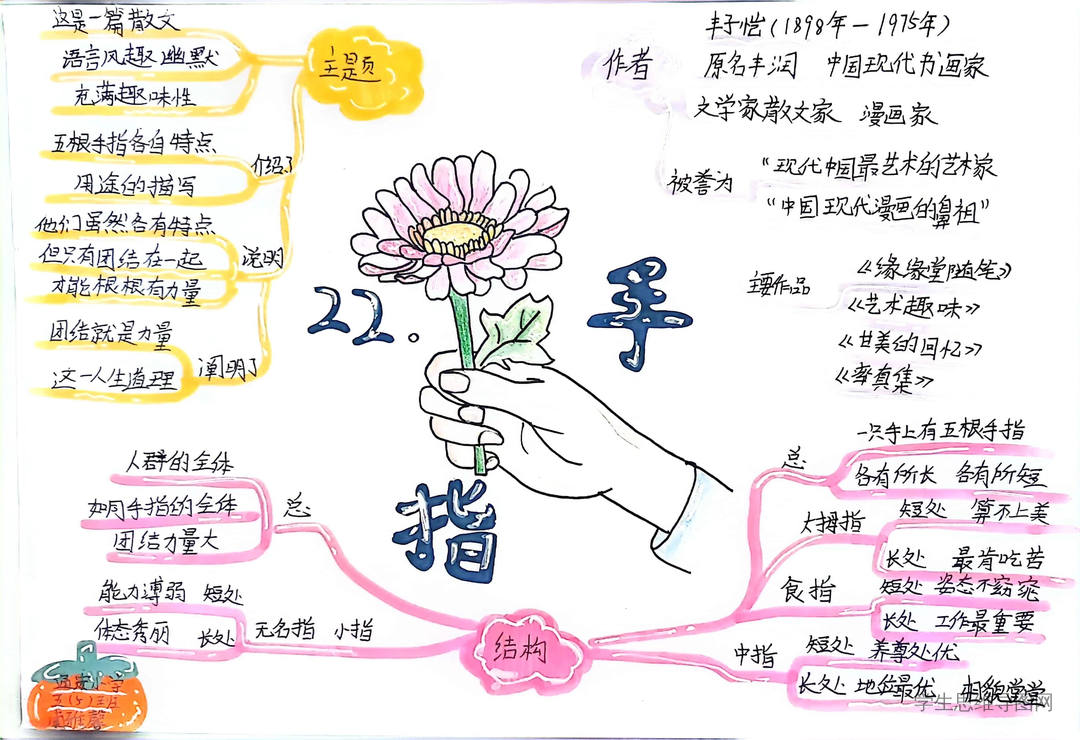 22.手指
主题
这是一篇散文
语言风趣幽默
充满趣味性
介绍了
五根手指各自特点
用途的描写
说明
他们虽然各有特点
但只有团结在一起
才能根根有力量
阐明了
团结就是力量
这一人生道理
作者
丰子恺(1898年—1975年)
原名丰润 中国现代书画家
文学家散文家 漫画家
被誉为
“现代中国最艺术的艺术家
“中国现代漫画的鼻祖”
主要作品
《缘缘堂随笔》
《艺术趣味》
《甘美的回忆》
《率真集》
结构
总
一只手上有五根手指
各有所长 各有所短
大拇指
短处 算不上美
长处 最肯吃苦
食指
短处 姿态不窈窕
长处 工作最重要
中指
短处 养尊处优
长处 地位最优 相貌堂堂
无名指 小指
能力薄弱 短处
体态秀丽 长处
总
人群的全体
如同手指的全体
团结力量大
学生思维导图网